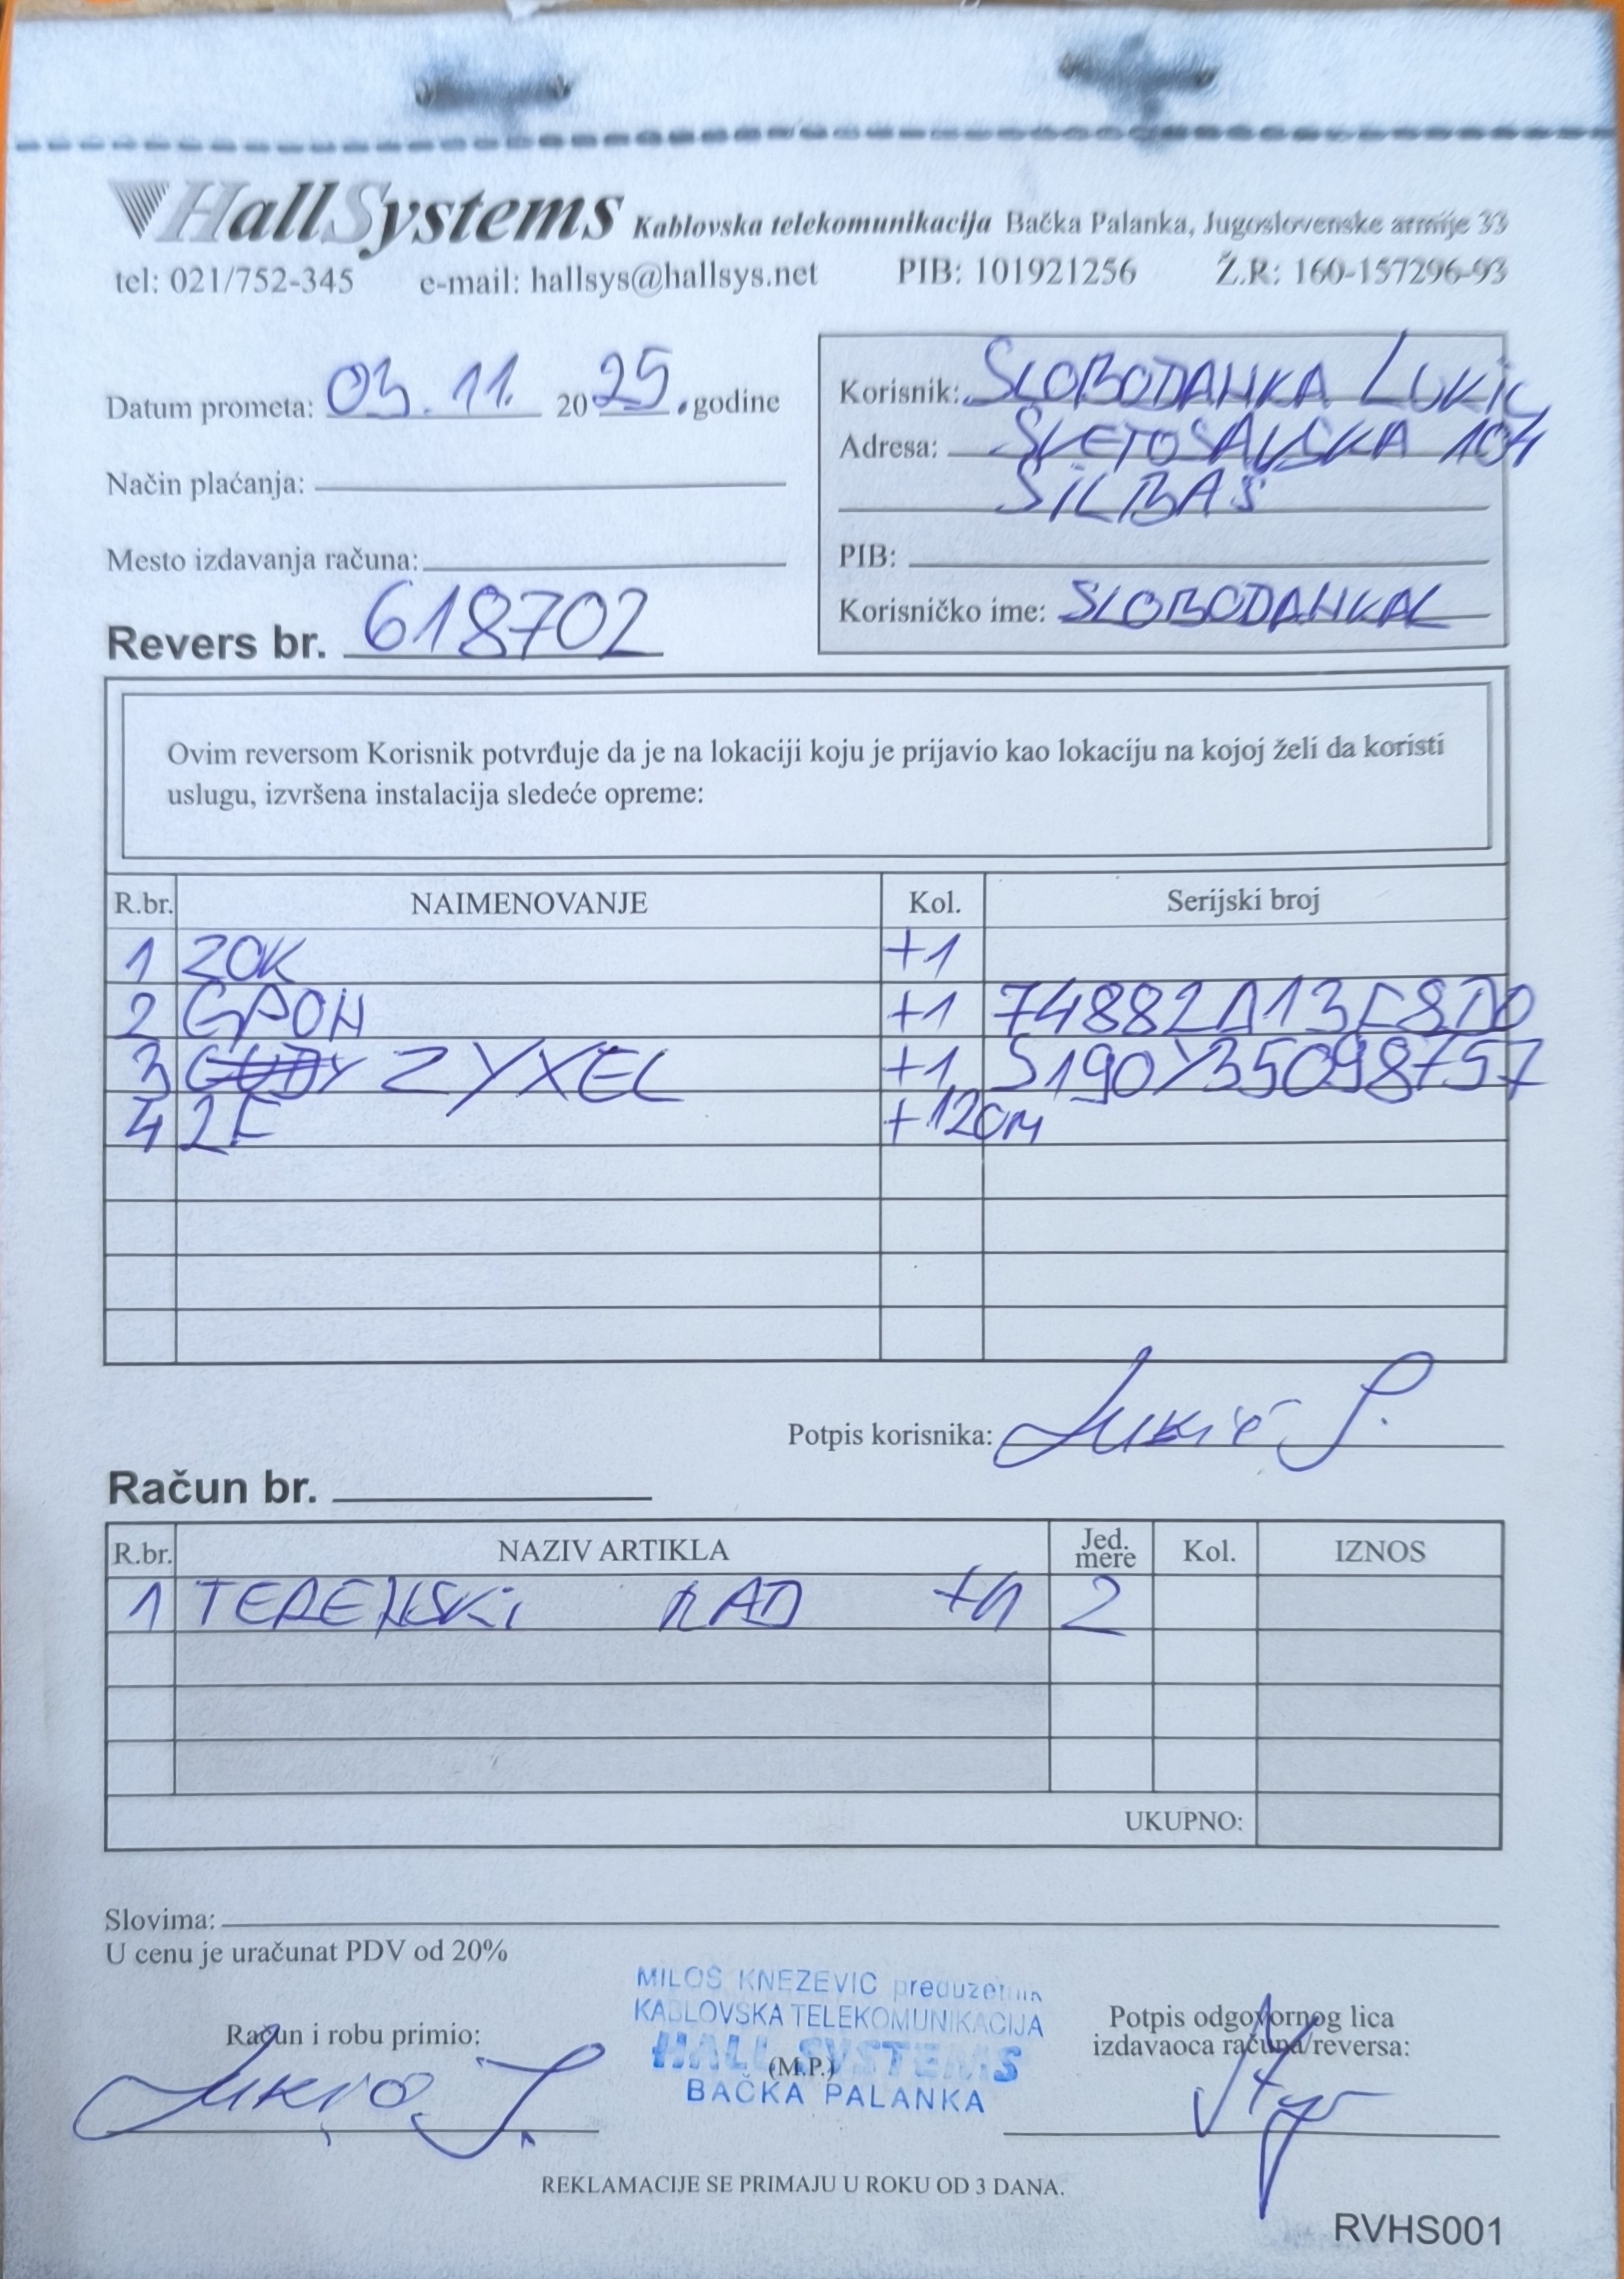 HallSystems Kablovska telekomunikacija Bačka Palanka, Jugoslovenske armije 33
tel: 021/752-345 e-mail: hallsys@hallsys.net PIB: 101921256 Ž.R: 160-157296-93
Datum prometa: 03.11. 2025. godine
Način plaćanja:
Mesto izdavanja računa:
Revers br. 618702
Korisnik: SLOBODANKA LUKIĆ
Adresa: SVETOSAVSKA 104
SILBAŠ
PIB:
Korisničko ime: SLOBODANKAL
Ovim reversom Korisnik potvrđuje da je na lokaciji koju je prijavio kao lokaciju na kojoj želi da koristi
uslugu, izvršena instalacija sledeće opreme:
R.br. NAIMENOVANJE Kol. Serijski broj
1 ZOK +1
2 GPON +1
3 ZYXEL +1 S190Y35098757
4 2F +120M
Potpis korisnika: Lukić S.
Račun br.
R.br. NAZIV ARTIKLA Jed. mere Kol. IZNOS
1 TERENSKI RAD +1 2
UKUPNO:
Slovima:
U cenu je uračunat PDV od 20%
Račun i robu primio:
Lukić S.
MILOŠ KNEZEVIC preduzetnik
KABLOVSKA TELEKOMUNIKACIJA
HALL SYSTEMS
(M.P.)
BAČKA PALANKA
Potpis odgovornog lica
izdavaoca računa/reversa:
REKLAMACIJE SE PRIMAJU U ROKU OD 3 DANA.
RVHS001